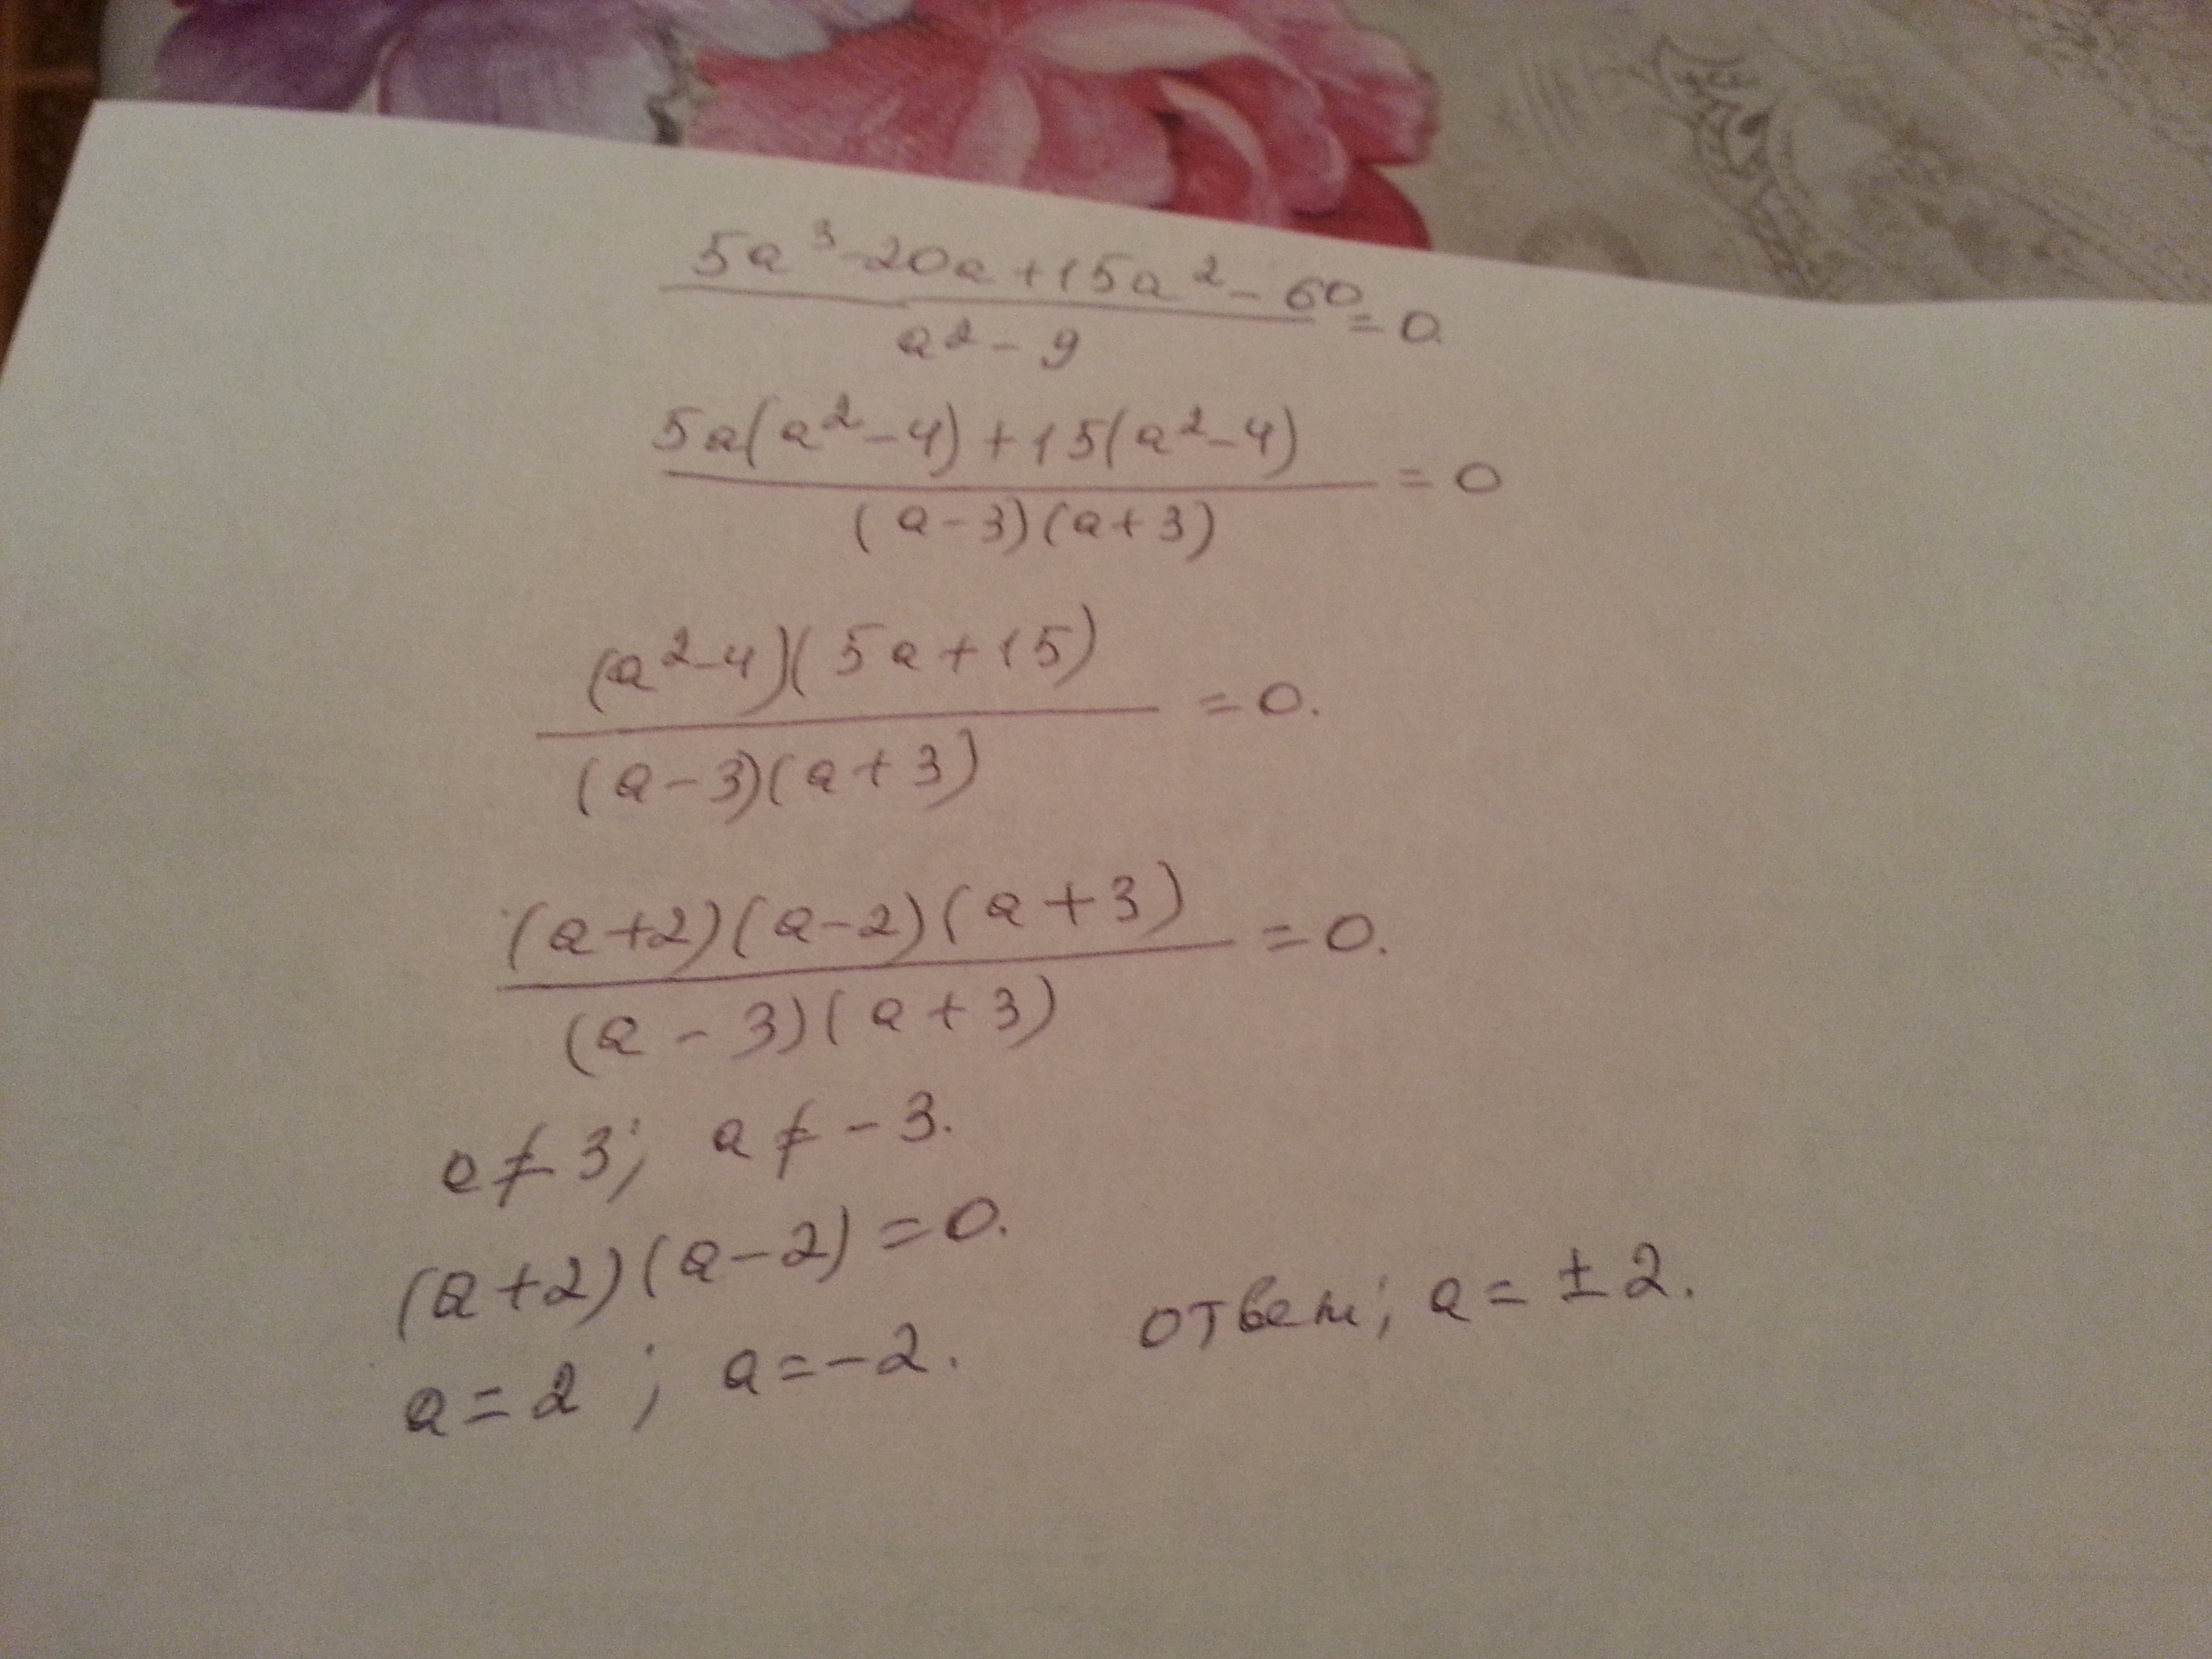 5a³-20a+15a²-60 / a²-9 =0.
5a(a²-4)+15(a²-4) / (a-3)(a+3) =0
(a²-4)(5a+15) / (a-3)(a+3) =0.
(a+2)(a-2)(a+3) / (a-3)(a+3) =0.
a≠3; a≠-3.
(a+2)(a-2)=0.
a=2; a=-2. ответ; a=±2.